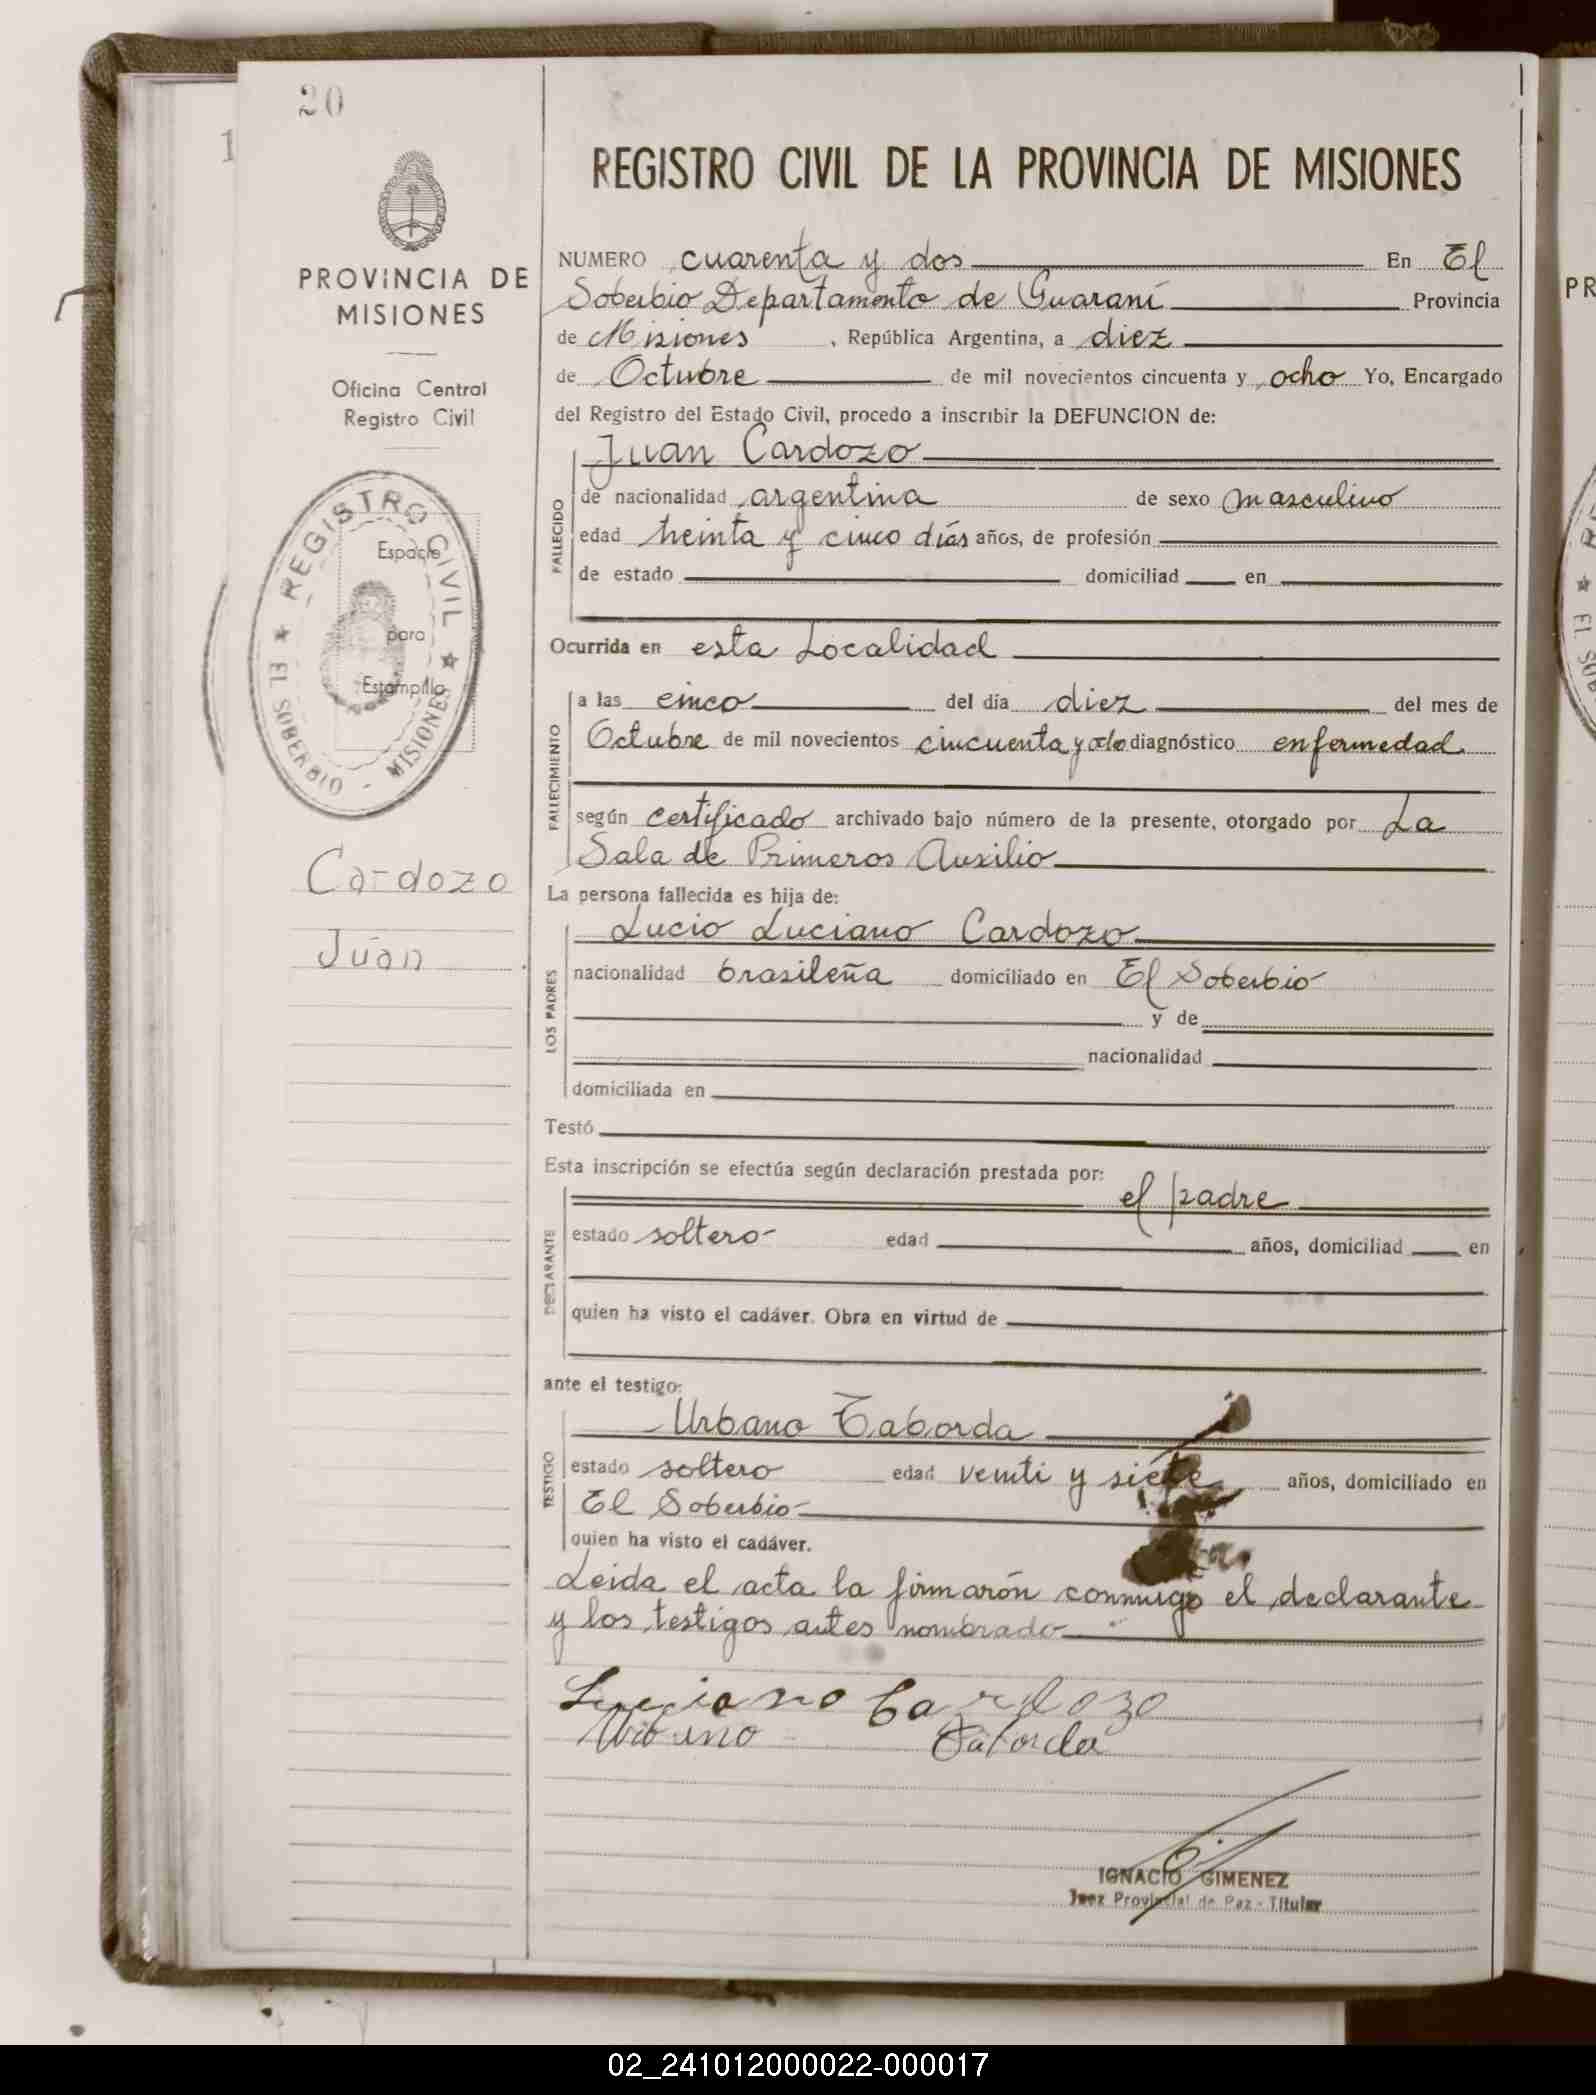 20
1
PROVINCIA DE
MISIONES
Oficina Central
Registro Civil
REGISTRO CIVIL
EL SOBERBIO - MISIONES
Espacio
para
Estampilla
Cardozo
Juan
REGISTRO CIVIL DE LA PROVINCIA DE MISIONES
NUMERO cuarenta y dos En El
Soberbio Departamento de Guaraní Provincia
de Misiones, República Argentina, a diez
de Octubre de mil novecientos cincuenta y ocho Yo, Encargado
del Registro del Estado Civil, procedo a inscribir la DEFUNCION de:
FALLECIDO
Juan Cardozo
de nacionalidad argentina de sexo masculino
edad treinta y cinco días años, de profesión
de estado domiciliad en
Ocurrida en esta Localidad
FALLECIMIENTO
a las cinco del día diez del mes de
Octubre de mil novecientos cincuenta y ocho diagnóstico enfermedad
según certificado archivado bajo número de la presente, otorgado por La
Sala de Primeros Auxilio
La persona fallecida es hija de:
LOS PADRES
Lucio Luciano Cardozo
nacionalidad brasileña domiciliado en El Soberbio
y de
nacionalidad
domiciliada en
Testó
Esta inscripción se efectúa según declaración prestada por:
DECLARANTE
el padre
estado soltero edad años, domiciliad en
quien ha visto el cadáver. Obra en virtud de
ante el testigo:
TESTIGO
Urbano Taborda
estado soltero edad veinti y siéte años, domiciliado en
El Soberbio
quien ha visto el cadáver.
Leida el acta la firmarón conmigo el declarante
y los testigos antes nombrado
Luciano Cardozo
Urbano Taborda
IGNACIO GIMENEZ
Juez Provincial de Paz - Titular
PR
02_241012000022-000017